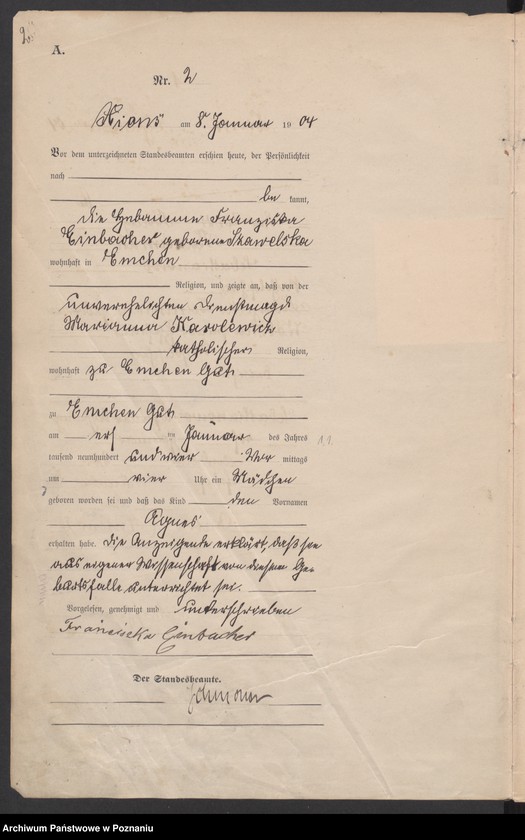 A.
Nr. 2
Xions am 8. Januar 19 04
Vor dem unterzeichneten Standesbeamten erschien heute, der Persönlichkeit
nach
be kannt,
die Hebamme Franziska
Einbacher geborene Skawelska
wohnhaft in Emchen
Religion, und zeigte an, daß von der
unverehelichten Dienstmagd
Marianna Karolewich
katholischer Religion,
wohnhaft zu Emchen Gut
zu Emchen Gut
am ersten Januar des Jahres 1.1.
tausend neunhundert undvier Vor mittags
um vier Uhr ein Mädchen
geboren worden sei und daß das Kind den Vornamen
Agnes
erhalten habe. Die Anzeigende erklärt, daß sie
aus eigener Wissenschaft von diesem Ge-
burtsfalle unterrichtet sei.
Vorgelesen, genehmigt und unterschrieben
Franciska Einbacher
Der Standesbeamte.
Archiwum Państwowe w Poznaniu